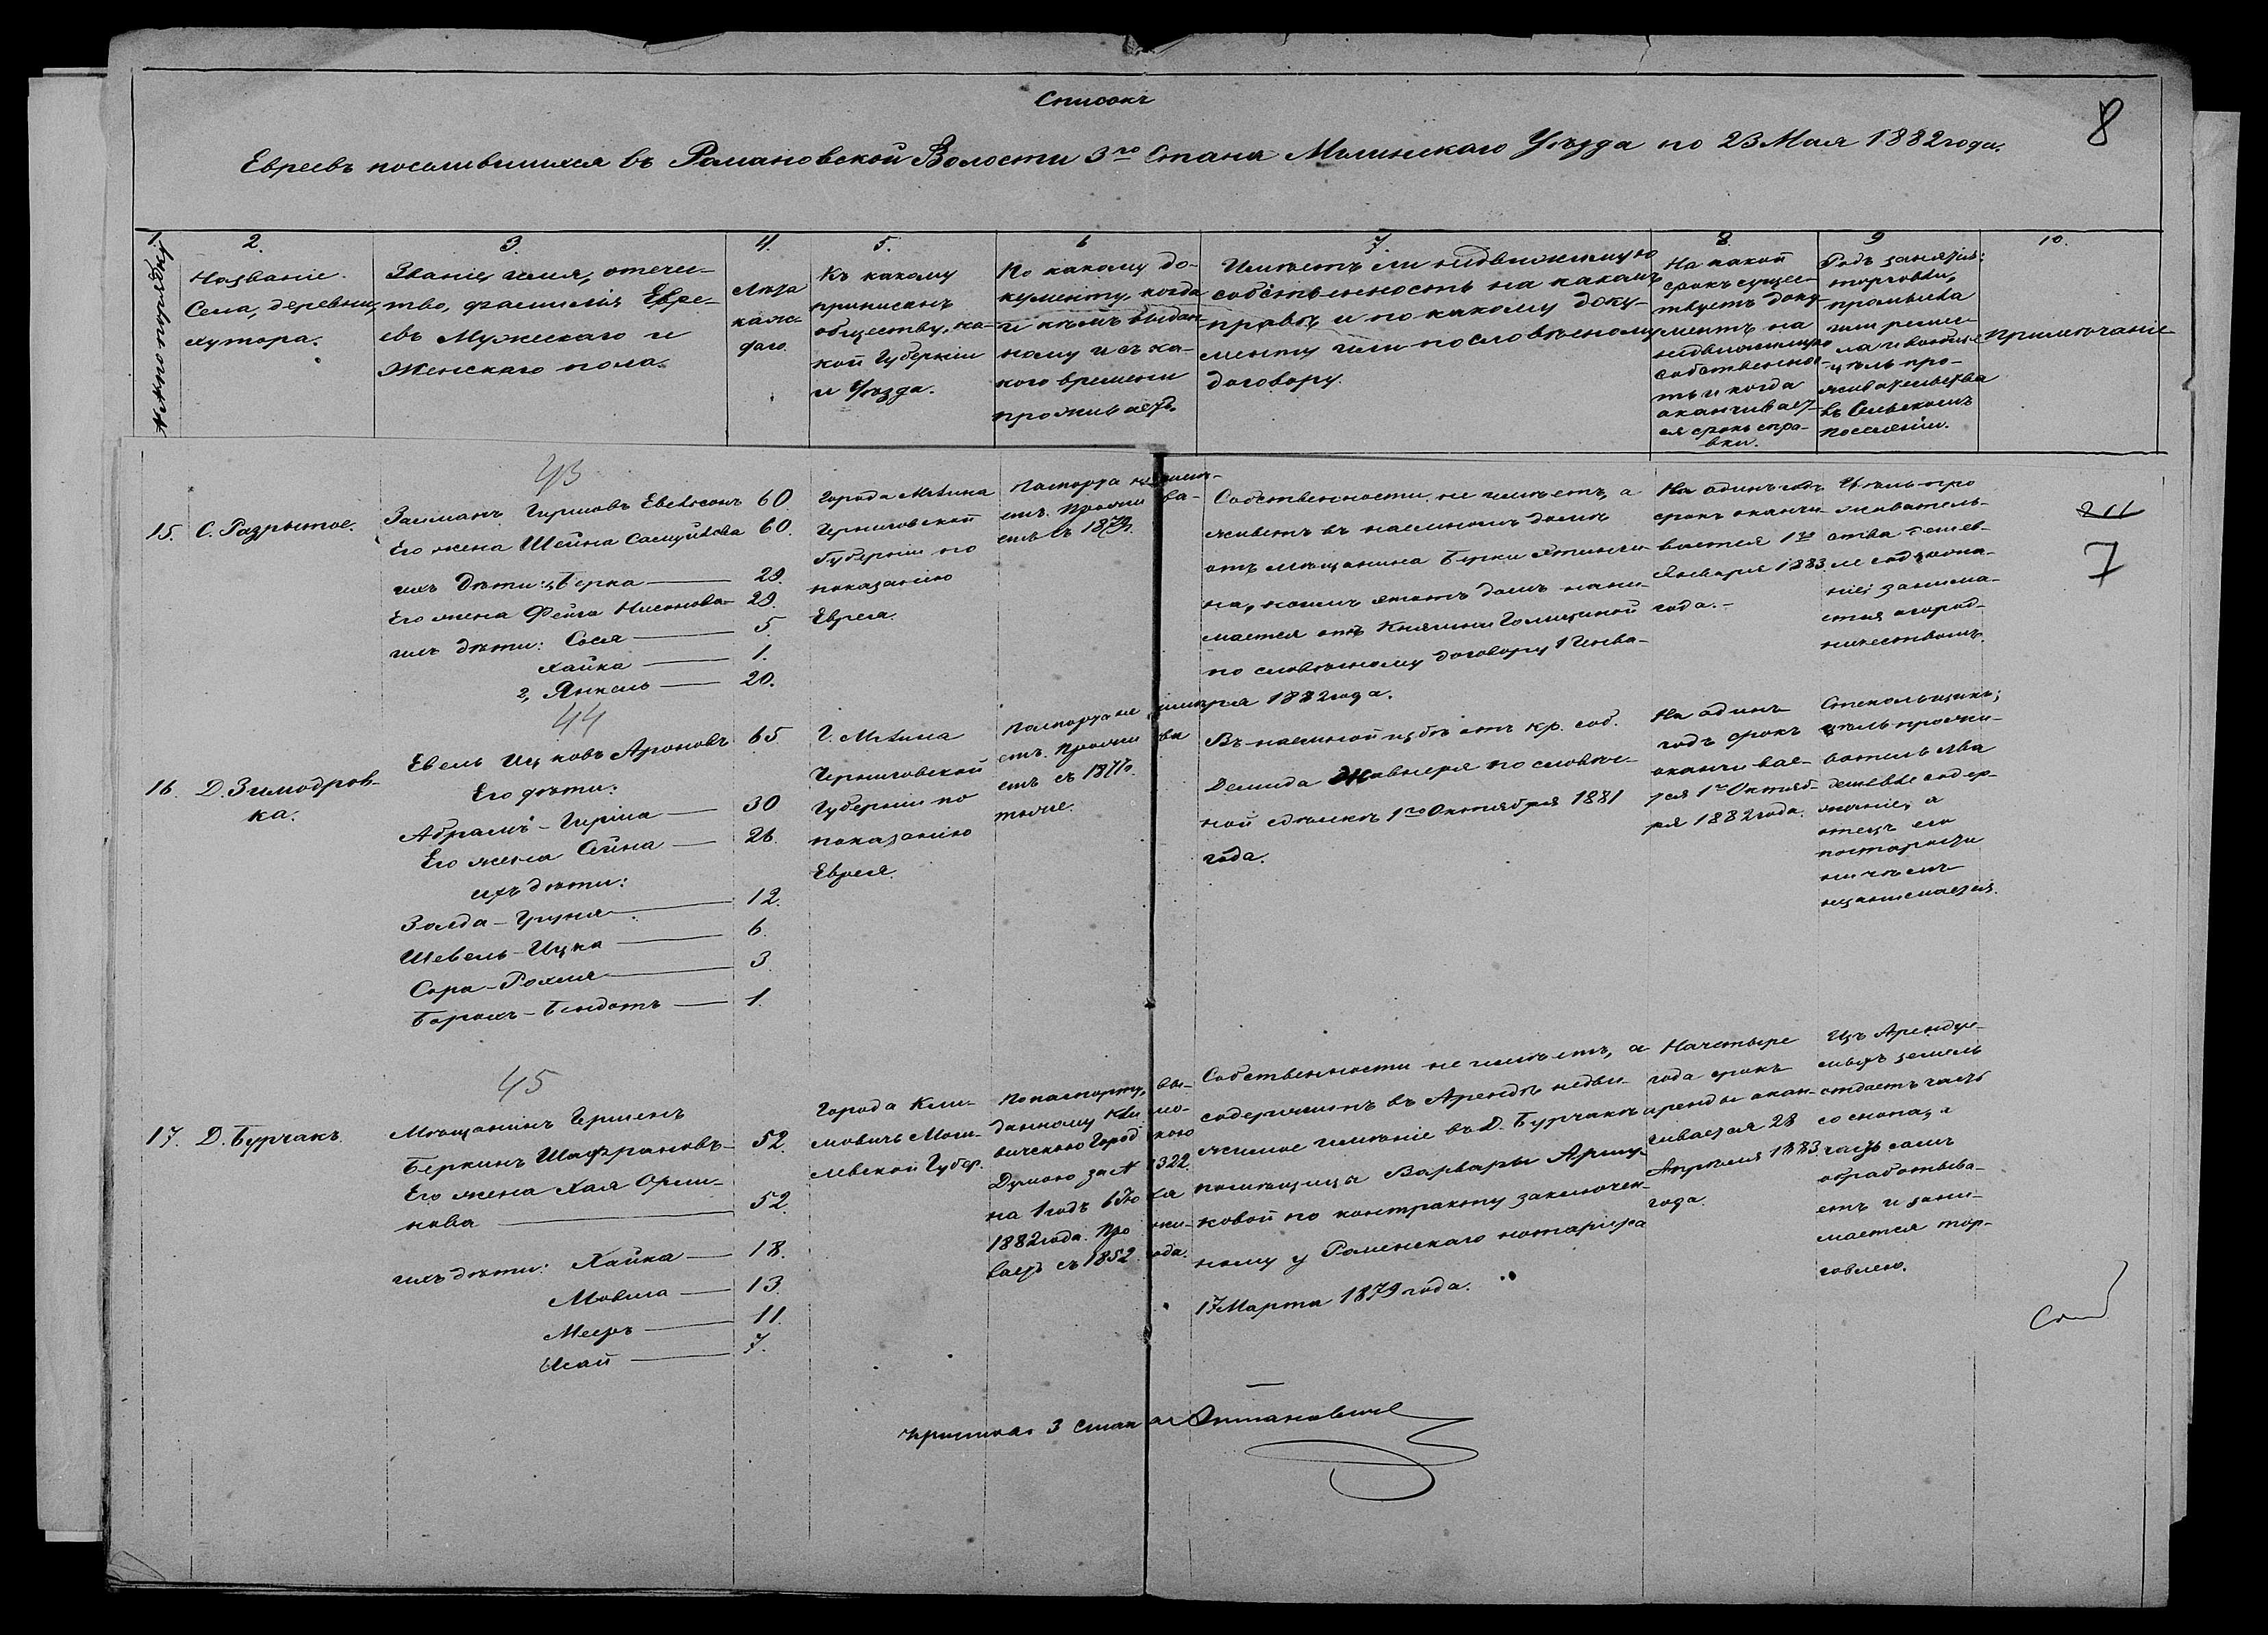 Списокъ
8
Евреевъ поселившихся въ Романовской Волости 3го Стана Мглинскаго Уѣзда по 23 Мая 1882 года.
1.
№№ по порядку
2.
Названіе
Села, деревни,
хутора.
3.
Званіе, имя, отече-
ство, фамилія Евре-
евъ Мужескаго и
Женскаго пола.
4.
Лѣта
каж-
даго.
5.
Къ какому
приписанъ
обществу, ка-
кой Губерніи
и Уѣзда.
6
По какому до-
кументу, когда
и кѣмъ выдан-
ному и съ ка-
кого времени
проживаетъ.
7.
Имѣетъ ли недвижимую
собственность на какомъ
правѣ и по какому доку-
менту или по словѣсному
договору.
8.
На какой
срокъ сущес-
твуетъ доку-
ментъ на
недвижимую
собственнос-
ть и когда
оканчивает-
ся срокъ спра-
вки.
9
Родъ занятія:
торговли,
промысла
или ремес-
ла и вообще
цѣль про-
жительства
въ Сельскомъ
поселеніи.
10.
Примѣчаніе
43
15.
С. Разрытое.
Залманъ Гиршовъ Евельсонъ 60.
Его жена Шейна Самуйлова 60.
ихъ дѣти: 1, Берка — 29.
Его жена Фейга Нисонова — 29.
ихъ дѣти: Сося — 5.
Хайка — 1.
2, Янкель — 20.
Города Мглина
Черниговской
Губерніи по
показанію
Еврея.
Паспорта не имѣ-
етъ. Прожива-
етъ съ 1879.
Собственности не имѣетъ, а
живетъ въ наемномъ домѣ
отъ мѣщанина Берки
на, коимъ этотъ домъ нани-
мается отъ Княгини Голициной
по словѣсному договору 1 Генва-
ря 1882 года.
На одинъ годъ
срокъ оканчи-
вается 1го
Января 1883
года. –
Цѣль про
живатель-
ства дешев-
ле содержа-
ніе; занима-
ется огород-
ничествомъ.
211
7
44
16.
Д. Зимодров-
ка.
Евель Ицковъ Ароновъ 65.
Его дѣти:
Абрамъ-Гирша — 30
Его жена Сейна — 26.
ихъ дѣти:
Золда-Груня — 12.
Шевель-Ицка — 6.
Сора-Рохля — 3.
Борохъ-Бендетъ — 1.
Г. Мглина
Черниговской
Губерніи по
показанію
Еврея.
Паспорта не имѣ
етъ. Прожива
етъ съ 1877
Въ наемной избѣ отъ кр. соб.
Демида Жавнеря по словѣс-
ной сдѣлкѣ 1го Октября 1881
года.
На одинъ
годъ срокъ
оканчивае-
тся 1го Октяб-
ря 1882 года.
Стекольщикъ;
цѣль прожи-
вательства
дешевле содер-
жаніе, а
отецъ его
по старости
ничѣмъ
незанимается.
45
17.
Д. Бурчакъ.
Мѣщанинъ Гершенъ
Беркинъ Шафрановъ — 52.
Его жена Хая Орли-
нова — 52.
ихъ дѣти: Хайка — 18.
Мовша — 13.
Мееръ — 11.
Исай — 7.
Города Кли-
мовичъ Моги-
левской Губер.
По паспорту, вы-
данному Климо-
вичскою Городскою
Думою за № 1322
на 1 годъ 6 Іюля
1882 года. Прожи-
ваетъ съ 1852 года.
Собственности не имѣетъ, а
содержитъ въ Арендѣ недви-
жимое имѣніе въ Д. Бурчакъ
помѣщицы Варвары
ковой по контракту заключен-
ному у Роменскаго нотаріуса
17 Марта 1879 года.
На четыре
года срокъ
аренды окан-
чивается 28
Апрѣля 1883
года.
Изъ Арендуе-
мыхъ земель
отдаетъ часть
со снопа, а
часть самъ
обработыва-
етъ и зани-
мается тор-
говлею.
Приставъ 3 Стана